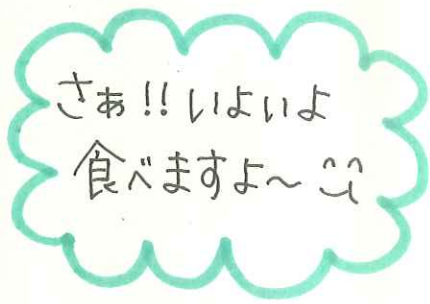 さぁ!!いよいよ
食べますよ～^^